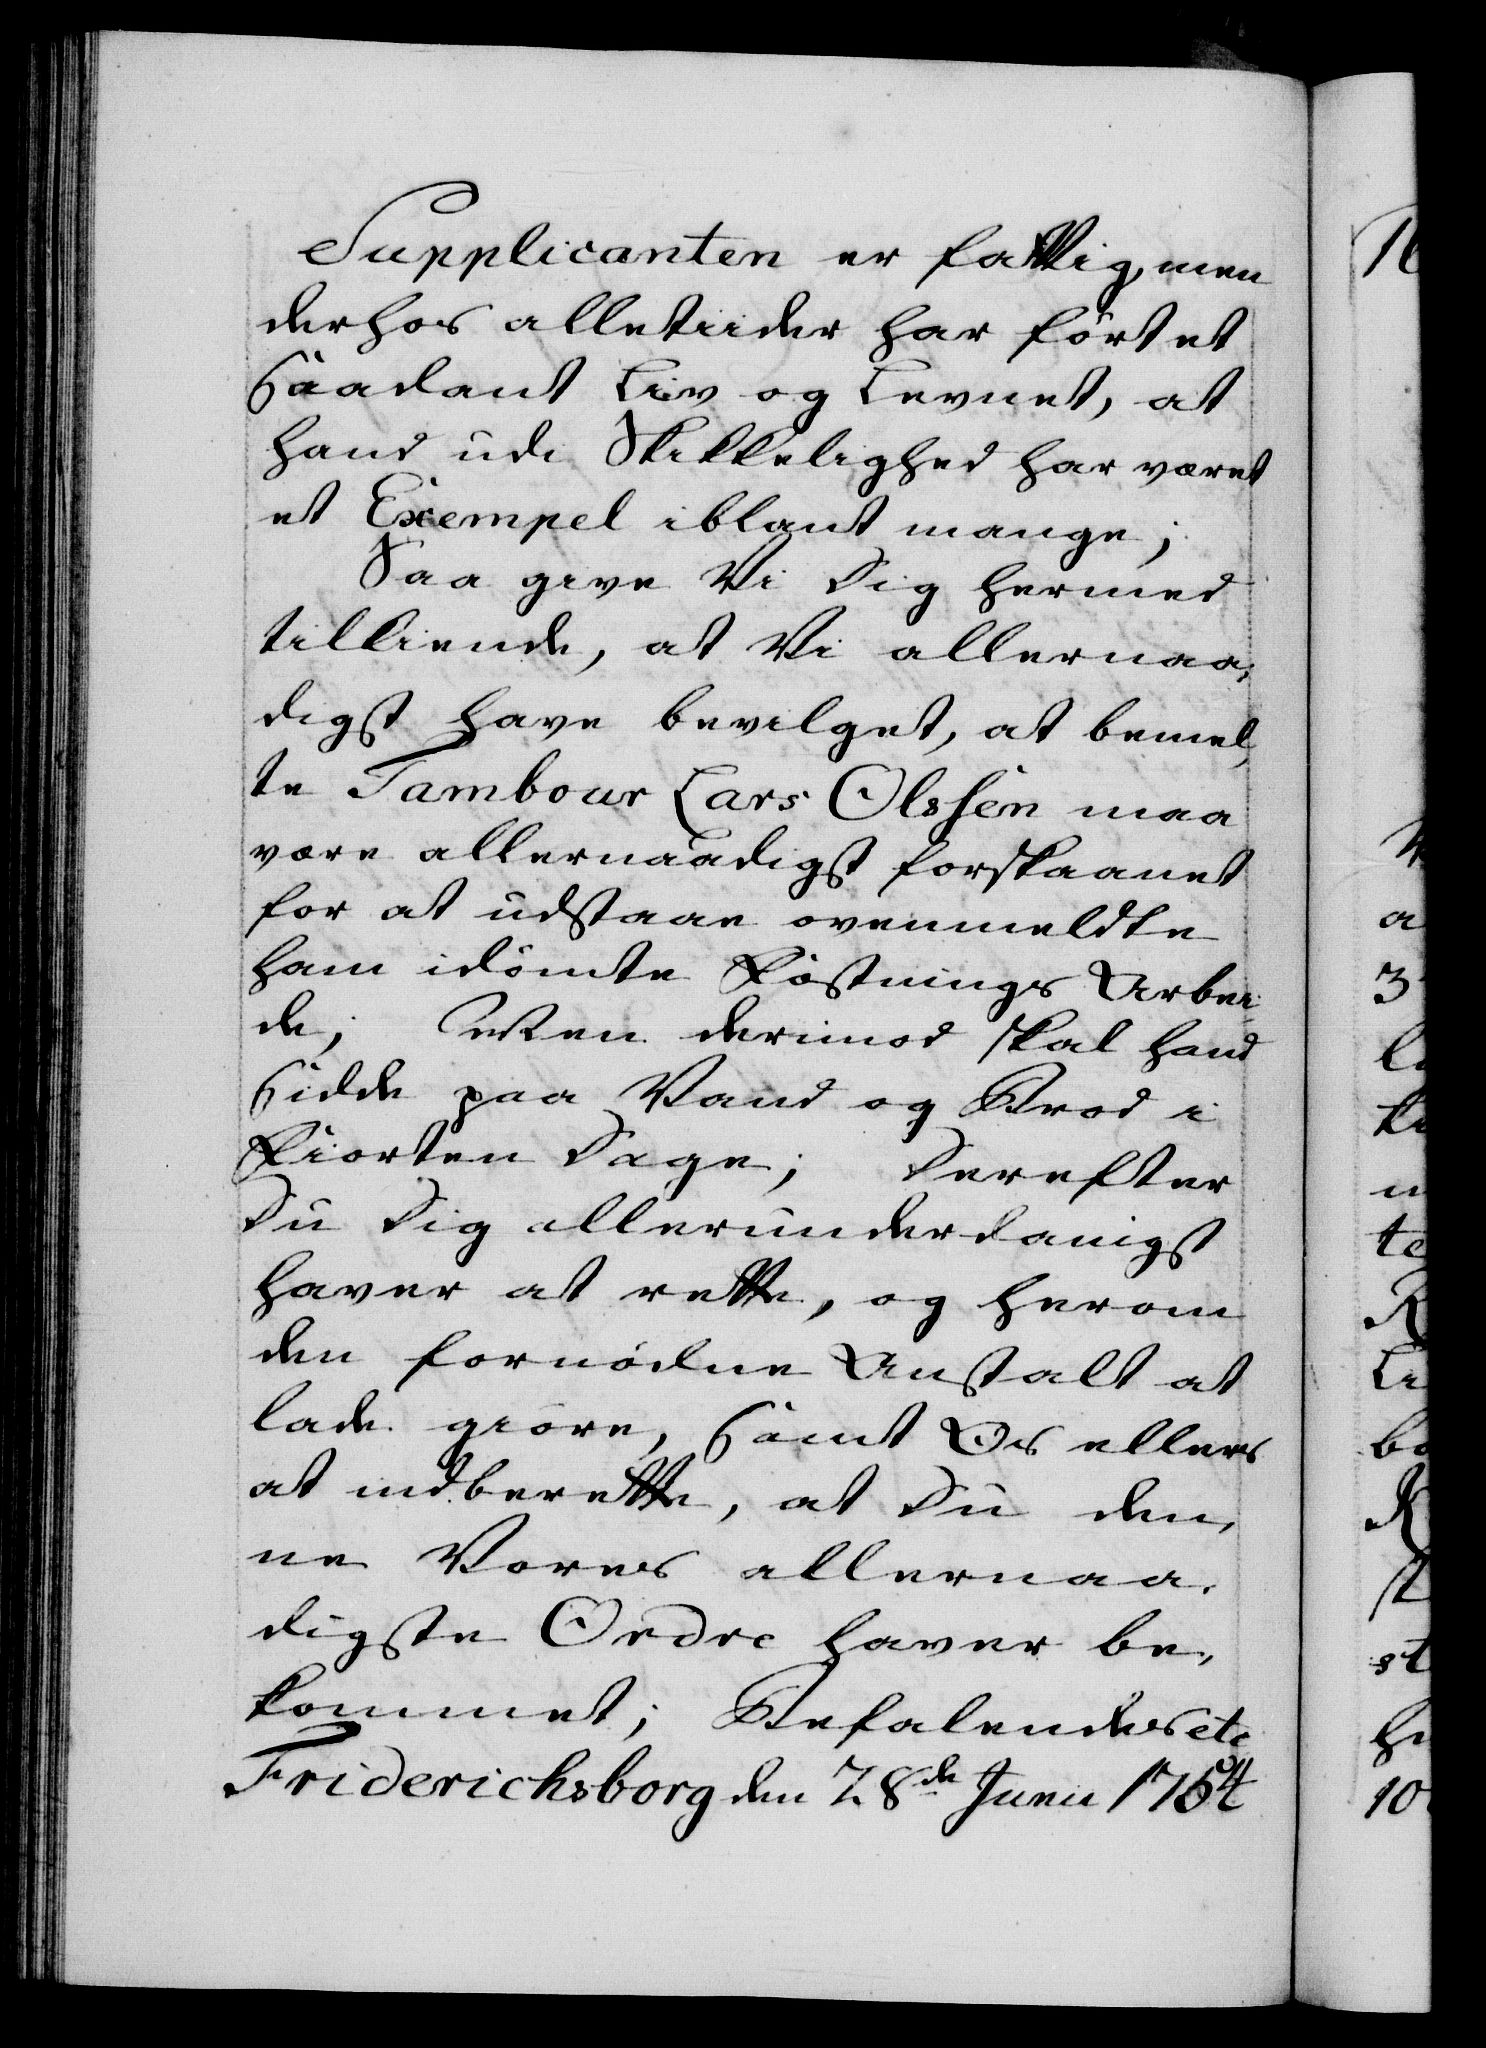 Supplicanten er fattig, men
derhos alletiider har ført et
saadant Liv og Levnet, at
hand udi Skikkelighed har været
et Exempel iblant mange;
Saa give Vi Dig hermed
tilkiende, at Vi allernaa-
digst have bevilget, at bemel-
te Tambour Lars Olssen maa
være allernaadigst forskaanet
for at udstaae ovenmeldte
ham idømte Fæstnings Arbei-
de; Men derimod skal hand
sidde paa Vand og Brød i
Fiorten Dage; Derefter
Du Dig allerunderdanigst
haver at rette, og herom
den fornødne Anstalt at
lade giøre, samt Os ellers
at indberette, at Du den-
ne Vores allernaa-
digste Ordre haver be-
kommet; Befalendes etc
Friderichsborg den 28de Junii 1754